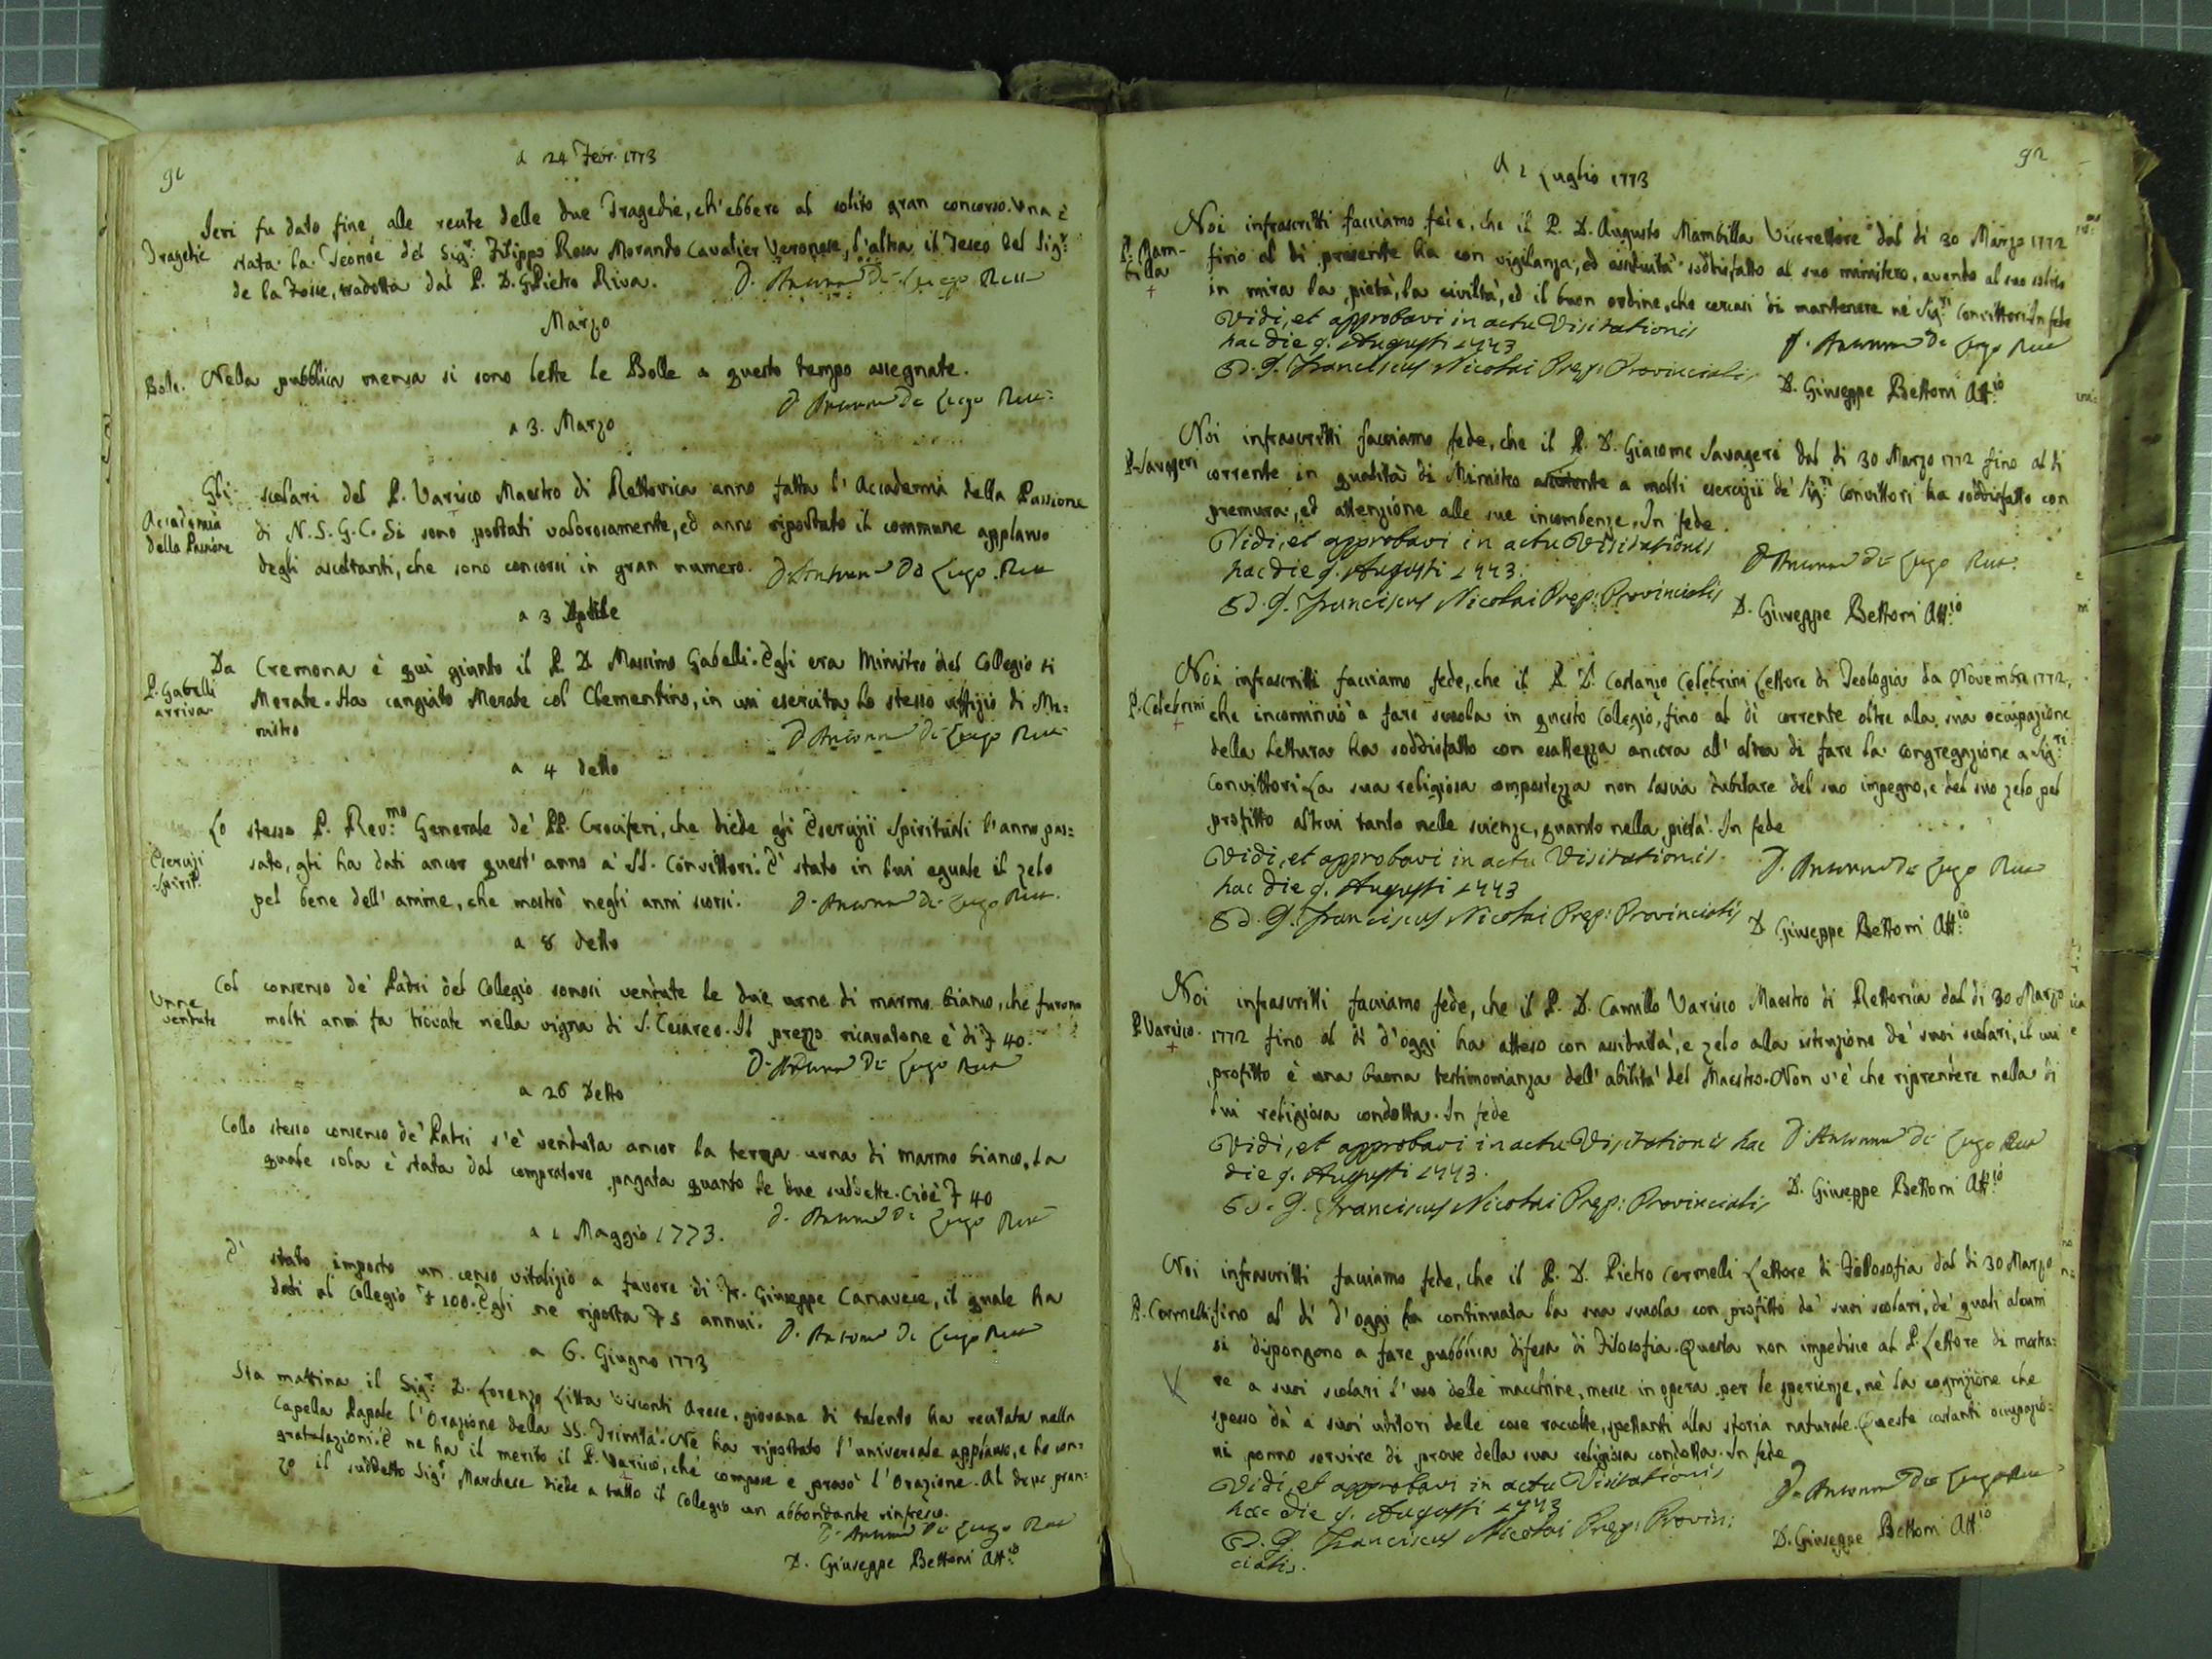 91
a 24 Febr. 1773
Ieri fu dato fine alle recite delle due Tragedie, ch'ebbero al solito gran concorso. Una è
Tragedie
stata la Teonoe del Sig.r Filippo Rosa Morando Cavalier Veronese, l'altra il Teseo del Sig.r
de la Fosse, tradotta dal P. D. GPietro Riva. D. Antonio De Lugo Rett
Marzo
Bolle. Nella pubblica mensa si sono lette le Bolle a questo tempo assegnate.
D. Antonio De Lugo Rett.
a 3. Marzo
Gli scolari del P. Varisco Maestro di Rettorica anno fatta l'Accademia della Passione
Accademia
della Passione
di N. S. G. C. Si sono portati valorosamente, ed anno riportato il commune applauso
degli ascoltanti, che sono concorsi in gran numero. D. Antonio De Lugo Rett
a 3 Aprile
Da Cremona è quì giunto il P. D. Massimo Gabelli. Egli era Ministro del Collegio di
P. Gabelli
arriva
Merate. Ha cangiato Merate col Clementino, in cui esercita lo stesso uffizio di Mi=
nistro D. Antonio De Lugo Rett
a 4 detto
Lo stesso P. Rev.mo Generale de' PP. Crociferi, che diede gli Esercizii Spirituali l'anno pas=
Esercizi
Spirit.
sato, gli ha dati ancor quest'anno a' SS. Convittori. E' stato in lui eguale il zelo
pel bene dell'anime, che mostrò negli anni scorsi. D. Antonio De Lugo Rett.
a 8 detto
Col consenso de' Padri del Collegio sonosi vendute le due urne di marmo bianco, che furono
Urne
vendute
molti anni fa trovate nella vigna di S. Cesareo. Il prezzo ricavatone è di 40.
D. Antonio De Lugo Rett
a 26 Detto
Collo stesso consenso de' Padri s'è venduta ancor la terza urna di marmo bianco, la
quale sola è stata dal compratore pagata quanto le due suddette. Cioè 40
D. Antonio De Lugo Rett
a 1 Maggio 1773.
E' stato imposto un censo vitalizio a favore di Fr. Giuseppe Canavese, il quale ha
dati al Collegio 100. Egli ne riporta 5 annui. D. Antonio De Lugo Rett
a 6. Giugno 1773
Sta mattina il Sig.r D. Lorenzo Litta Visconti Arese, giovane di talento ha recitata nella
Capella Papale l'Orazione della SS. Trinità. Ne ha riportato l'universale applauso, e le con=
gratulazioni. E ne ha il merito il P. Varisco, che compose e provò l'Orazione. Al dopo pran=
zo il suddetto Sig.r Marchese diede a tutto il Collegio un abbondante rinfresco.
D. Antonio De Lugo Rett
D. Giuseppe Bettoni Att.io
92
A 1 Luglio 1773
Noi infrascritti facciamo fede, che il P. D. Augusto Mambilla Vicerettore dal di 30 Marzo 1772
P. Mam-
billa
fino al dì presente ha con vigilanza, ed assiduità soddisfatto al suo ministero, avendo al suo solito
in mira la pietà, la civiltà, ed il buon ordine, che cercasi di mantenere ne' Sig.ri Convittori. In fede
Vidi, et approbavi in actu Visitationis
hac die 9. Augusti 1773 D. Antonio De Lugo Rett
D. G. Franciscus Nicolai Prep: Provincialis
D. Giuseppe Bettoni Att.io
Noi infrascritti facciamo fede, che il P. D. Giacomo Savageri dal di 30 Marzo 1772 fino al di
P. Savageri
corrente in qualità di Ministro assistente a molti esercizii de' Sig.ri Convittori ha soddisfatto con
premura, ed attenzione alle sue incombenze. In fede
Vidi, et approbavi in actu Visitationis
hac die 9. Augusti 1773. D. Antonio De Lugo Rett.
D. G. Franciscus Nicolai Prep: Provincialis
D. Giuseppe Bettoni Att.io
Noi infrascritti facciamo fede, che il P. D. Costanzo Celebrini Lettore di Teologia da Novembre 1772,
P. Celebrini
che incominciò a fare scuola in questo Collegio, fino al dì corrente oltre alla sua occupazione
della Lettura ha soddisfatto con esattezza ancora all'altra di fare la Congregazione a Sig.ri
Convittori. La sua religiosa compostezza non lascia dubitare del suo impegno, e del suo zelo pel
profitto altrui tanto nelle scienze, quanto nella pietà. In fede
Vidi, et approbavi in actu Visitationis. D. Antonio De Lugo Rett
hac die 9. Augusti 1773
D. G. Franciscus Nicolai Prep: Provincialis
D. Giuseppe Bettoni Att.io
Noi infrascritti facciamo fede, che il P. D. Camillo Varisco Maestro di Rettorica dal di 30 Marzo
P. Varisco.
1772 fino al dì d'oggi ha atteso con assiduità, e zelo alla istruzione de' suoi scolari, il cui
profitto è una buona testimonianza dell'abilità del Maestro. Non v'è che riprendere nella di
lui religiosa condotta. In fede
Vidi, et approbavi in actu Visitationis hac D. Antonio De Lugo Rett
die 9. Augusti 1773.
D. G. Franciscus Nicolai Prep: Provincialis D. Giuseppe Bettoni Att.io
Noi infrascritti facciamo fede, che il P. D. Pietro Cermelli Lettore di Filosofia dal di 30 Marzo
P. Cermelli
fino al dì d'oggi ha continuata la sua scuola con profitto de' suoi scolari, de' quali alcuni
si dispongono a fare pubblica difesa di Filosofia. Questa non impedisce al P. Lettore di mostra=
re a suoi scolari l'uso delle macchine, messe in opera per le sperienze, nè la cognizione che
spesso dà a suoi uditori delle cose raccolte, spettanti alla storia naturale. Queste costanti occupazio=
ni ponno servire di prove della sua religiosa condotta. In fede
Vidi, et approbavi in actu Visitationis
hac die 9. Augusti 1773 D. Antonio De Lugo Rett
D. G. Franciscus Nicolai Prep: Provin:
cialis.
D. Giuseppe Bettoni Att.io